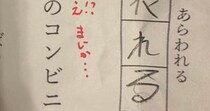 あらわれる
れる
!?
え まじか…
のコンビニ